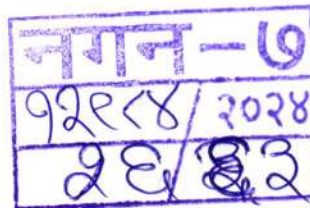 नगन - ७
१२९८४/२०२४
२६/६३